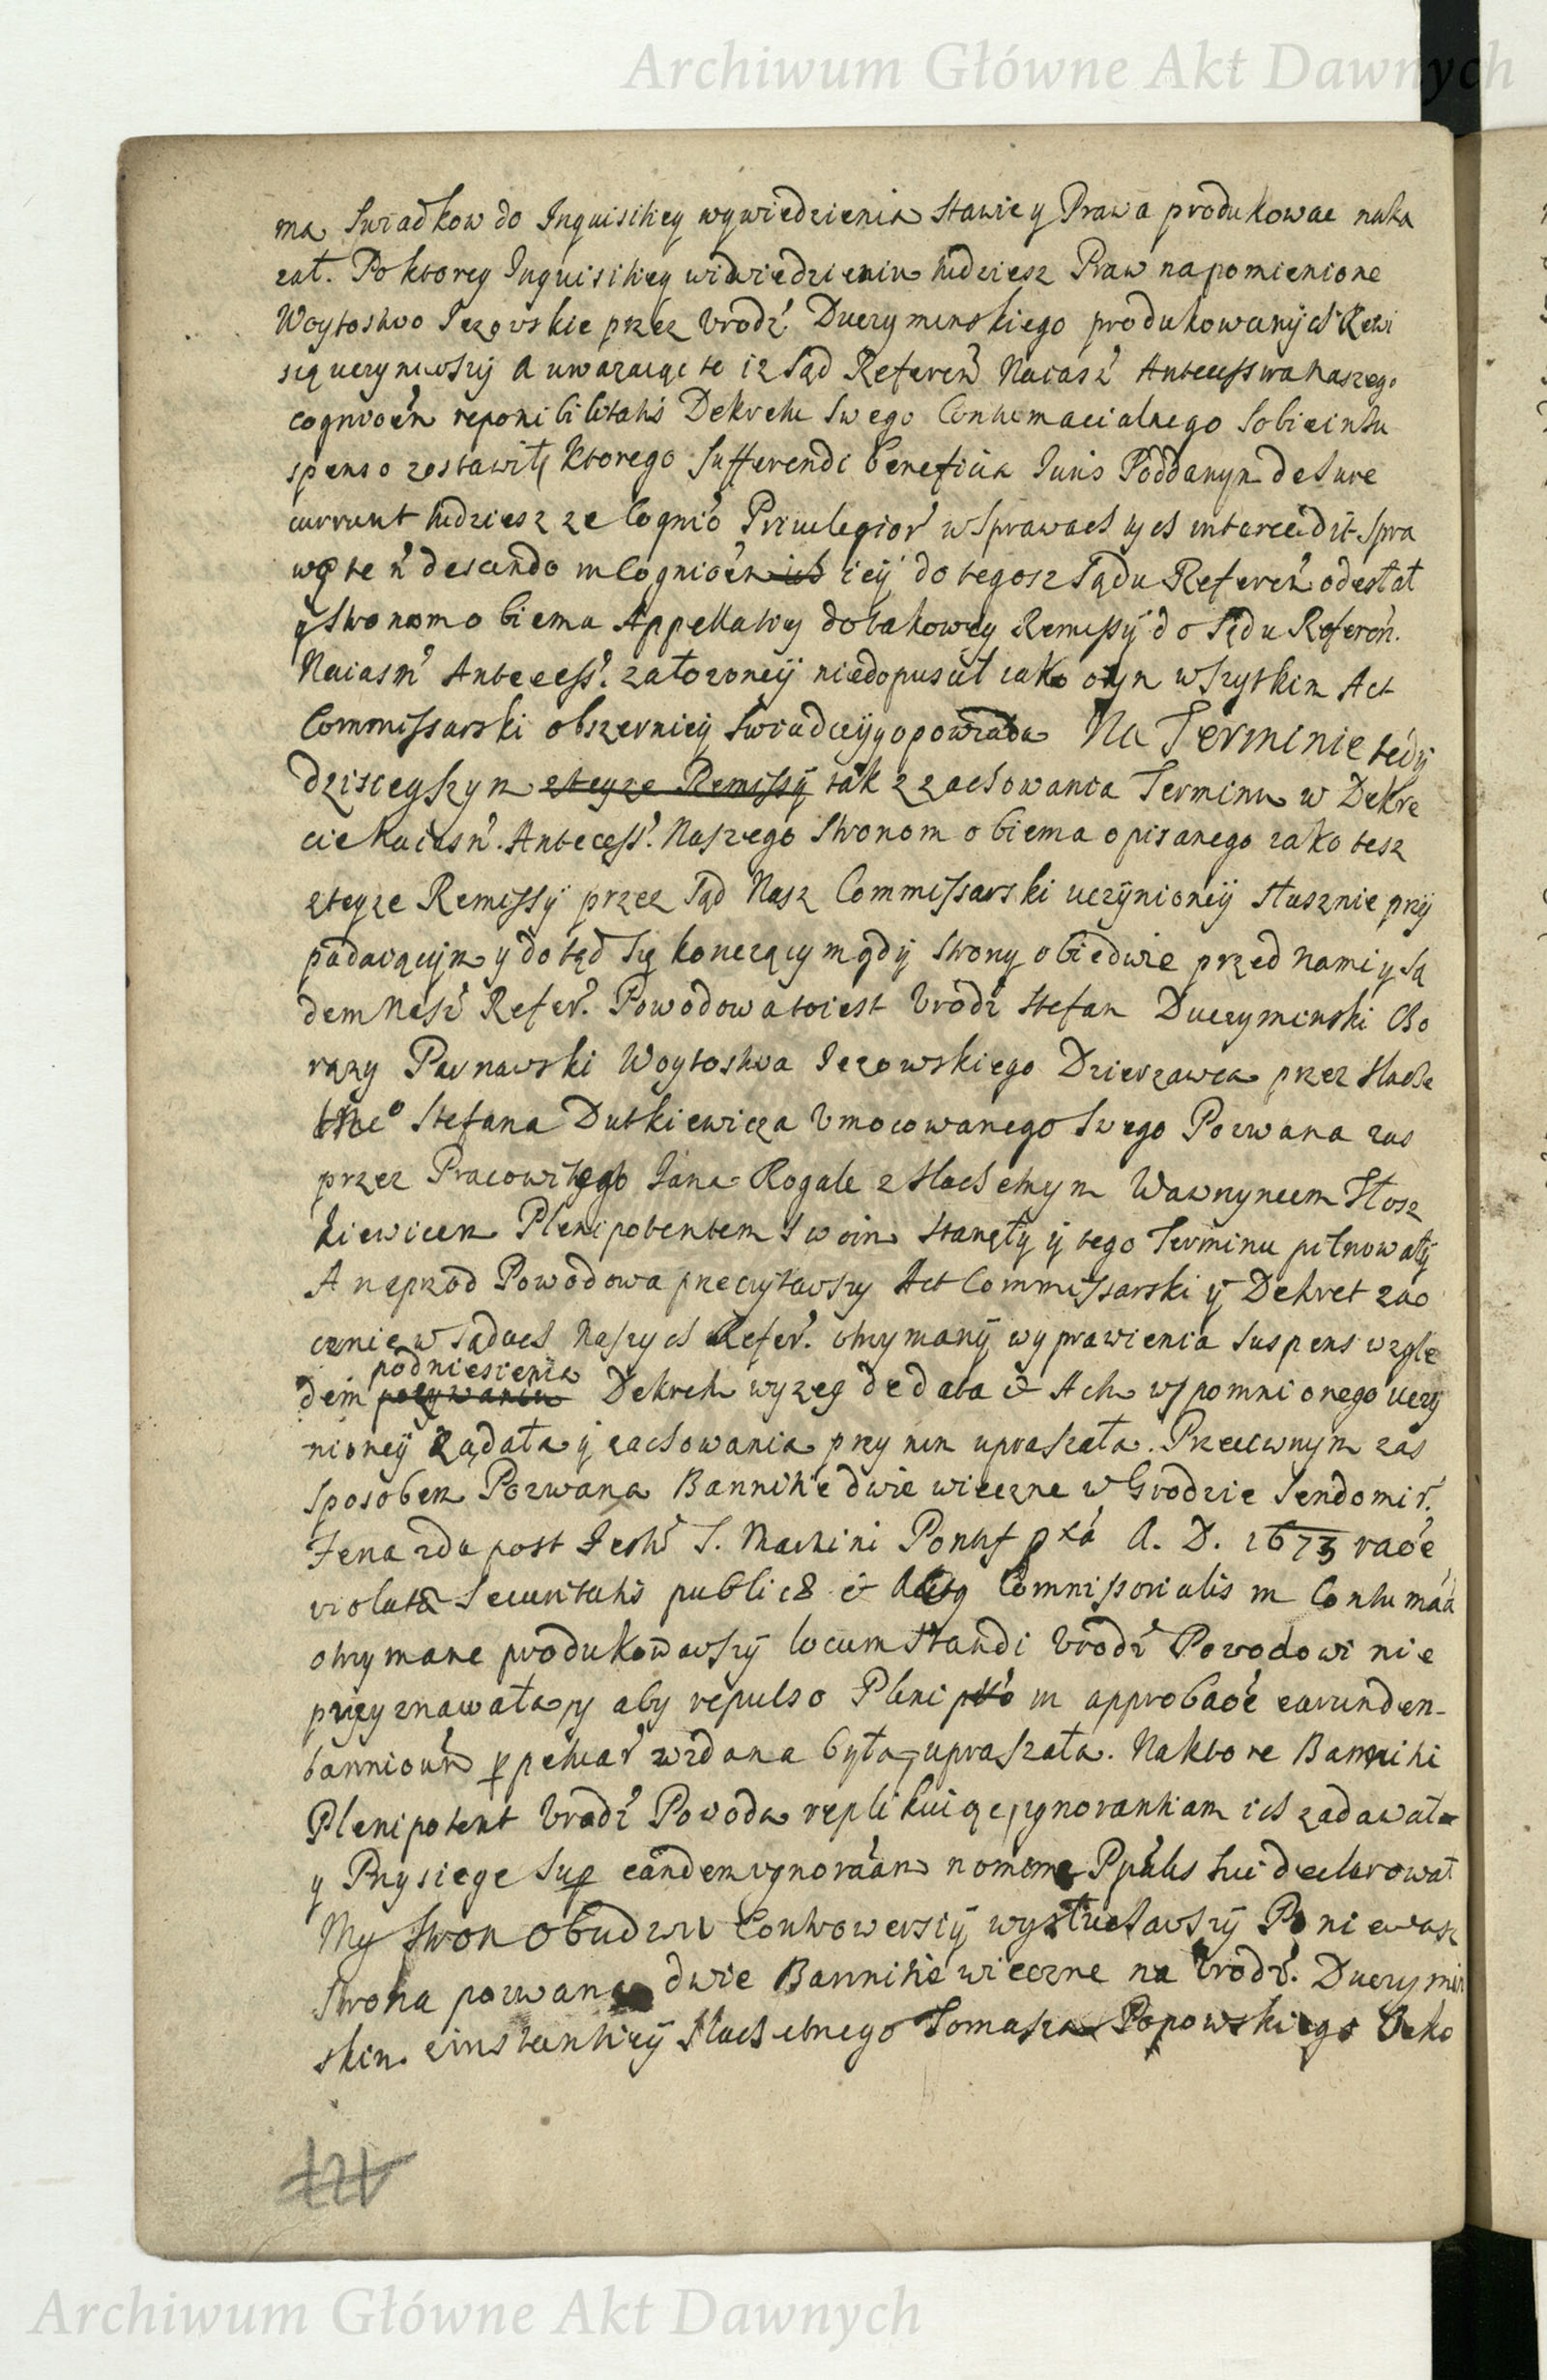 Archiwum Główne Akt Dawnych
ma Swiadkow do Inquisitiey wywiedzienia stawic y Prawa produkowac naka
zał. Po ktorey Inquisitiey widwiedzieniu tudziesz Praw na pomienione
Woytostwo Iezowskie przez Vrodź. Duczyminskiego produkowanych Rewi
sią uczyniwszy a uwazaiąc te iz Sąd Refereń Naiasź Antecessora naszego
cognioēn reponibilitatis Dekretu Swego Contumacialnego Sobie in Su
spenso zostawiły ktorego Sufferendi beneficia Iuris Poddanym de Iure
currunt tudziesz ze Cognio Priuilegior w Sprawach tych intercedit Spra
wę te ń descindo in Cognioēn ich iey do tegosz Sądu Refereń odesłał
y Stronom obiema Appellatiey do takowey Remissy do Sądu Referen.
Naiasń Antecess. załozoney niedopuscił iako o tym wszytkim Act
Commissarski obszerniey Swiadczy y opowiada Na Terminie tedy
dzisieyszym z teyze Remissy tak z zachowania Terminu w Dekre
cie Naiasń. Antecess. Naszego Stronom obiema opisanego iako tesz
z teyze Remissy przez Sąd Nasz Commissarski uczynioney słusznie przy
padaiącym y dotąd Się konczącym gdy Strony obiedwie przed nami y Są
dem Nasź Refer. Powodowa to iest Vrodź Stefan Duczyminski Cho
rązy Parnawski Woytostwa Iezowskiego Dzierzawca przez Slache
tne° Stefana Dutkiewicza Vmocowanego Swego Pozwana zas
przez Pracowitego Iana Rogale z Slachetnym Wawrzyncem Stosz
kiewicem Plenipotentem Swoim Stanęły y tego Terminu pilnowały
A naprzod Powodowa przeczytawszy Act Commissarski y Dekret zao
cznie w Sądach Naszych Refer. otrzymany wyprawienia Suspens wzglę
podniesienia
dem pozywania Dekretu wyzey de data et Actu wspomnionego uczy
nioney ządała y zachowania przy nim upraszała. Przeciwnym zas
Sposobem Pozwana Bannitie dwie wieczne w Grodzie Sendomir.
Feria 2da post Festū S. Martini Pontif pxá A. D. 1673 raōe
violatæ Securitatis publicæ et Actg Commissorialis in Contumaá
otrzymane produkowawszy locum standi Vrodź Powodowi nie
przyznawała y aby repulso Plenipttō in approbaōe earundem
bannioun perpetuar zdana była, upraszała. Na ktore Bannitii
Plenipotent Vrodź Powoda replikuiąc, ignorantiam ich zadawał
y Przysiege Sup eāndem ignoraān nomine Ppālis Sui declarował
My Stron Obudwu Controwersiy wysłuchawszy Poniewasz
Strona pozwana dwie Bannitie wieczne na Vrodź. Duczymin
skim z instantiey Slachetnego Tomasza Popowskiego Oeko
Archiwum Główne Akt Dawnych